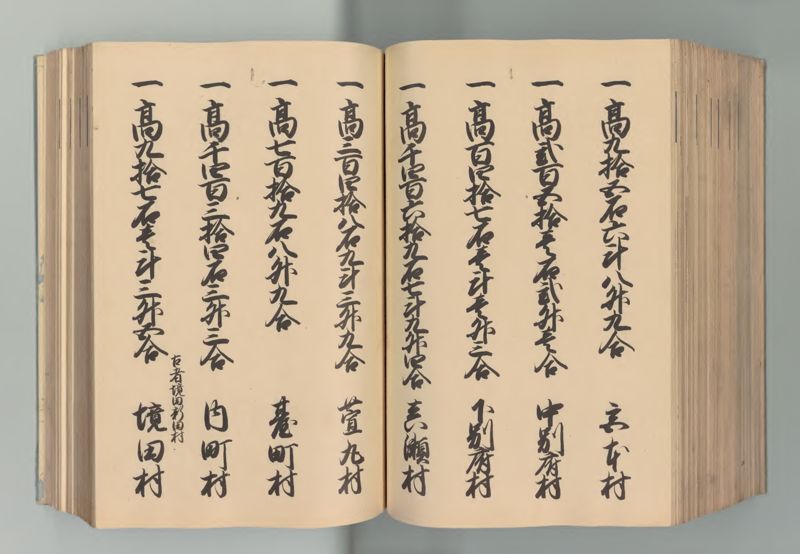 一高九拾五石六斗八升九合 本村
一高弐百五拾壱石弐升壱合 中別府村
一高百四拾七石壱斗壱升三合 下別府村
一高千四百六拾九石七斗九升四合 真瀬村
一高三百四拾八石九斗三升九合 萱丸村
一高七百拾九石八升九合 臺町村
一高千四百三拾四石三升三合 内町村
古者境田新田村
一高九拾七石壱斗三升五合 境田村